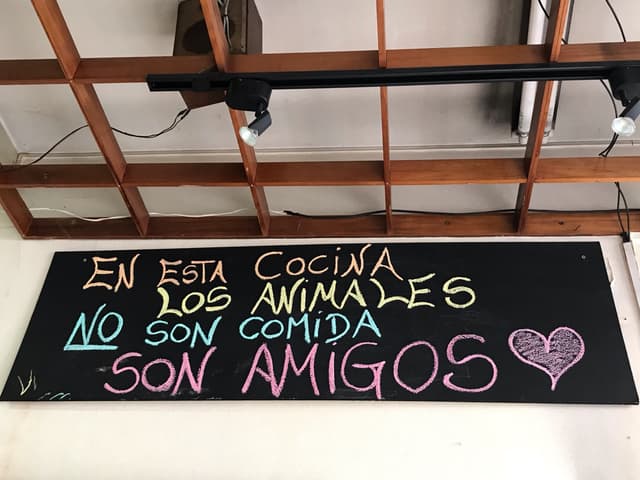 EN ESTA COCINA
LOS ANIMALES
NO SON COMIDA
SON AMIGOS